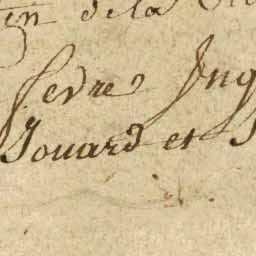 de la
fevre Jng
Jouard et